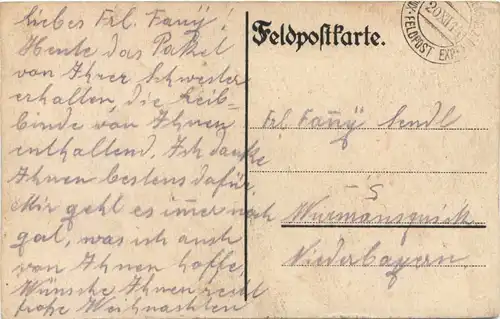 Liebes Frl. Fanÿ!
Heute das Paket
von Ihrer Schwester
erhalten, die Leib-
binde von Ihnen
enthaltend. Ich danke
Ihnen bestens dafür.
Mir geht es im̅er noch
gut, was ich auch
von Ihnen hoffe.
Wünsche Ihnen recht
frohe Weihnachten
Feldpostkarte.
Frl Fan̅ÿ Sendl
Wurmansquick
Niederbayern
20.XII.1
FELDPOST EXP